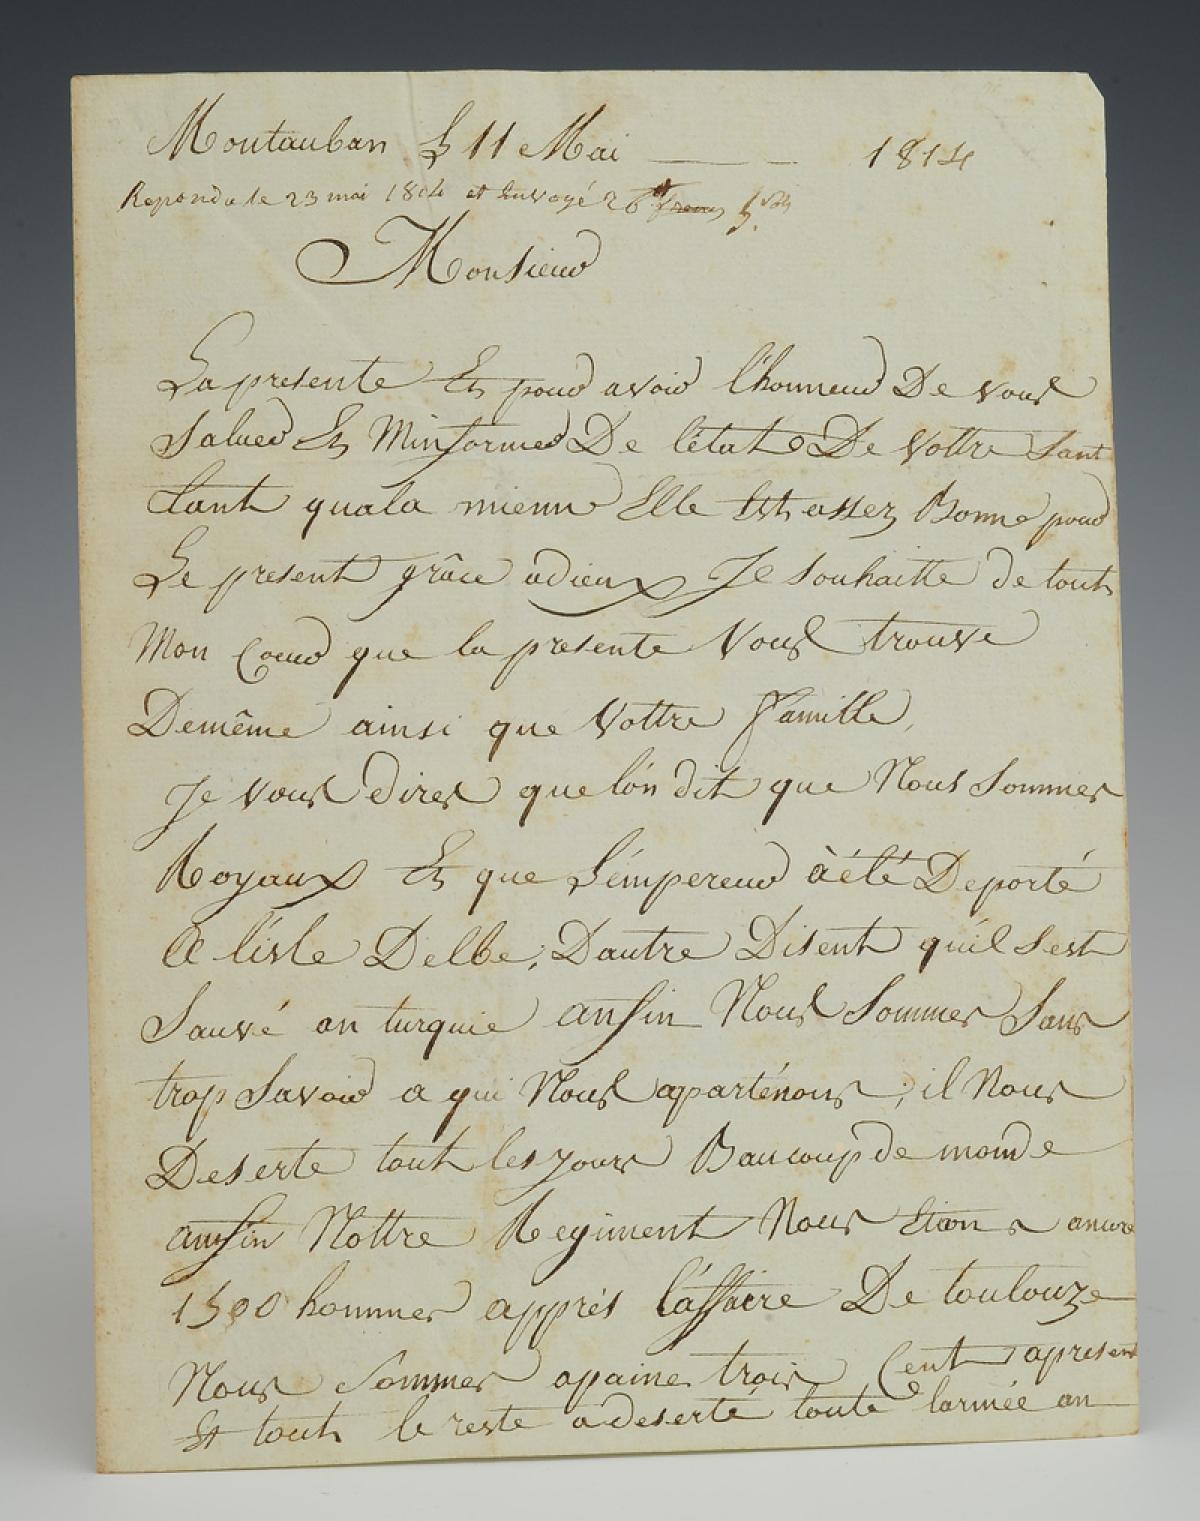 Montauban Le 11 Mai 1814
Repondu le 23 mai 1814 et Envoyé 26
Monsieur
La presente Et pour avoir l'honneur De vous
Saluer Et Minformer De l'état De Vottre Sant
tant quala mienne Elle Est assez Bonne pour
Le present grâce àdieux Je souhaitte de tout
Mon Coeur que la presente Vous trouve
Demême ainsi que Vottre famille,
Je vous dires que lón dit que Nous Sommes
Royaux Et que L'émpereur àété Deporté
a l'isle Delbe; Dautre Disent qu'il s'est
Sauvé an turquie anfin Nous Sommes Sans
trop Savoir a qui Nous apparténons; il Nous
Deserte tout les jours Baucoup de monde
anfin Nottre Regiment Nous Etions ancore
1500 hommes apprés l'affaire De toulouze
Nous Sommes apaine trois Cent apresent
Et tout le reste a deserté toute larmée an